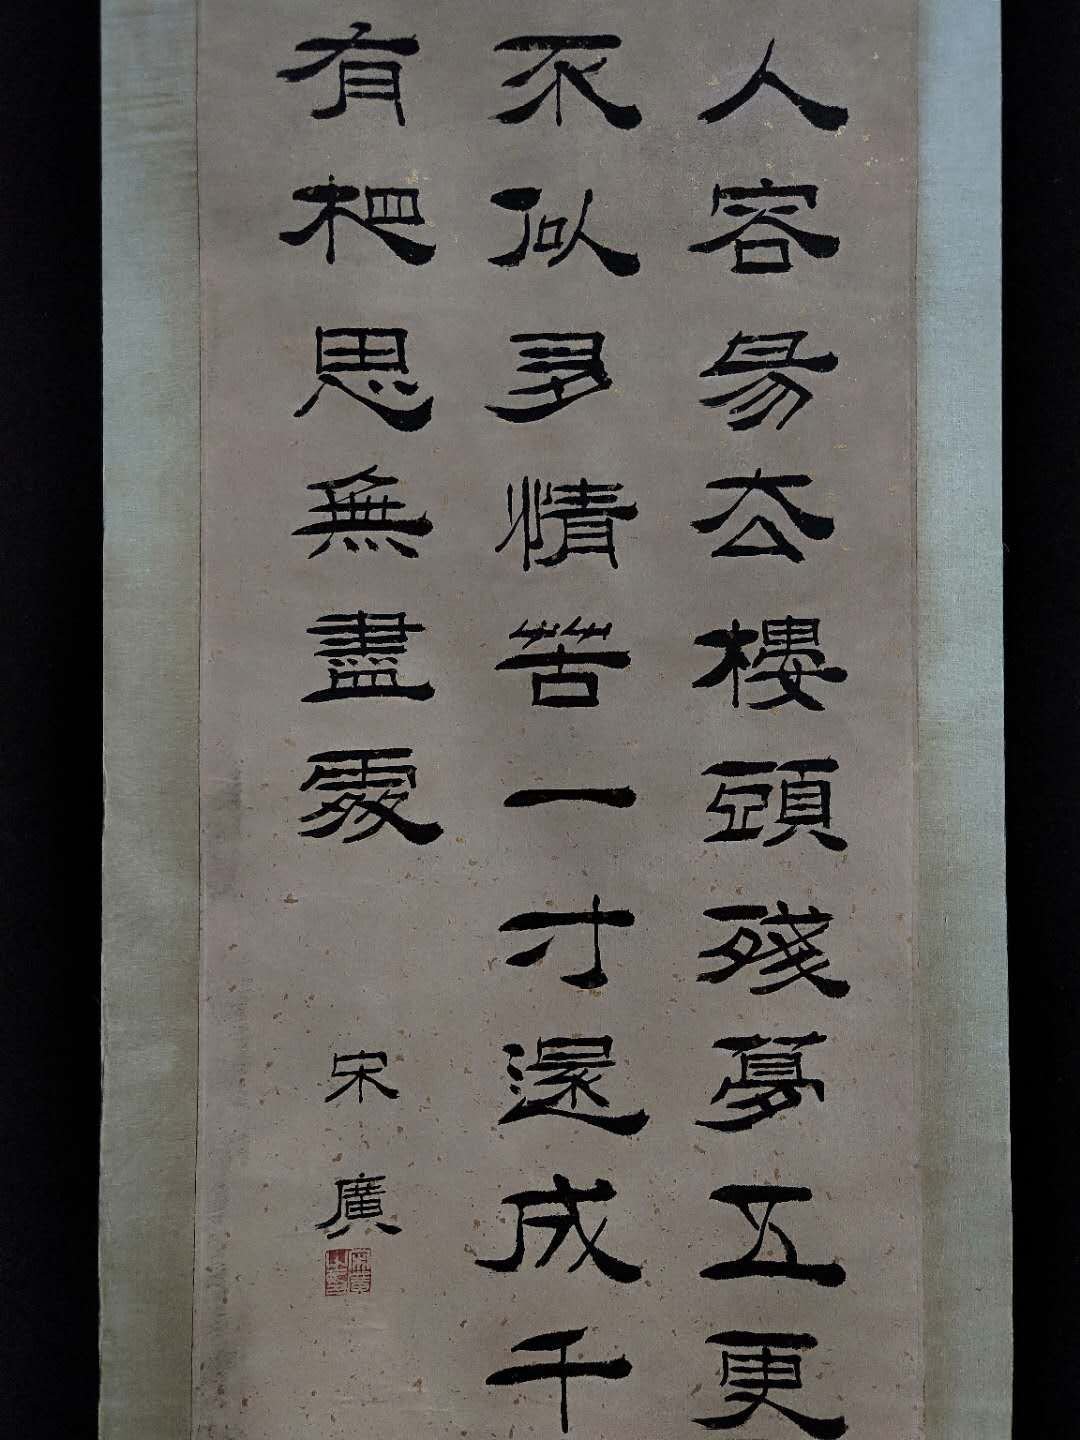 人容易去樓頭殘夢五更
不似多情苦一寸還成千
有相思無盡處
宋廣